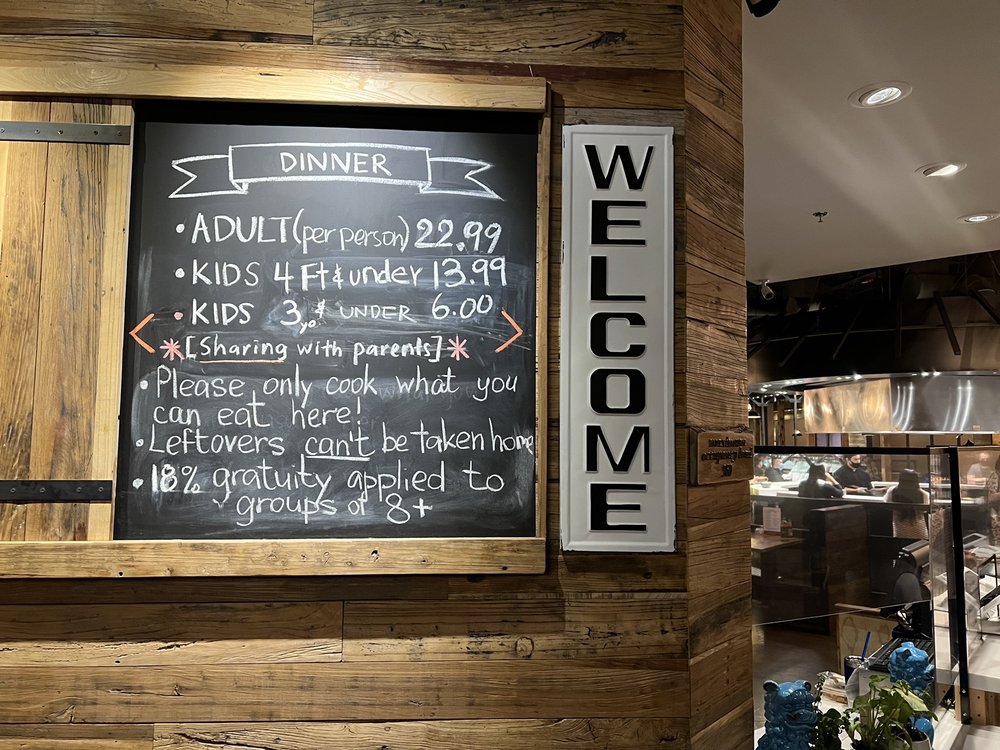 DINNER
• ADULT (per person) 22.99
• KIDS 4 Ft & under 13.99
• KIDS 3 yo & UNDER 6.00
< *[Sharing with parents]* >
• Please only cook what you
can eat here!
• Leftovers can't be taken home
• 18% gratuity applied to
groups of 8+
WELCOME